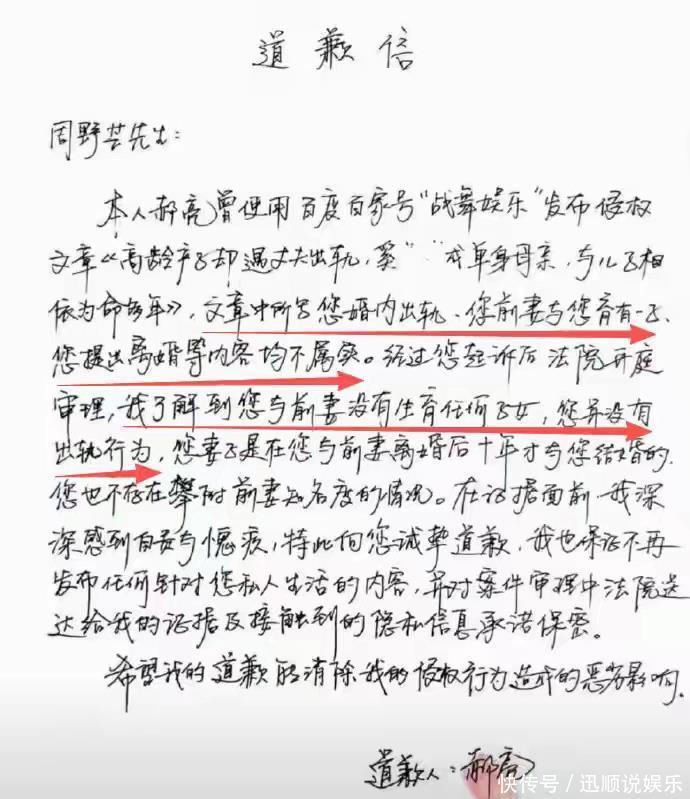 道歉信
周野芒先生：
本人郝亮曾使用百度百家号“战舞娱乐”发布侵权
文章《高龄产子却遇丈夫出轨，奚" "成单身母亲，与儿子相
依为命多年》，文章中所写您婚内出轨、您前妻与您育有一子、
您提出离婚等内容均不属实。经过您起诉后法院开庭
审理，我了解到您与前妻没有生育任何子女，您并没有
出轨行为，您妻子是在您与前妻离婚后十年才与您结婚的，
您也不存在攀附前妻知名度的情况。在证据面前我深
深感到自责与愧疚，特此向您诚挚道歉，我也保证不再
发布任何针对您私人生活的内容，并对案件审理中法院送
达给我的证据及接触到的隐私信息承诺保密。
希望我的道歉能消除我的侵权行为造成的恶劣影响。
道歉人：郝亮
快传号／迅顺说娱乐